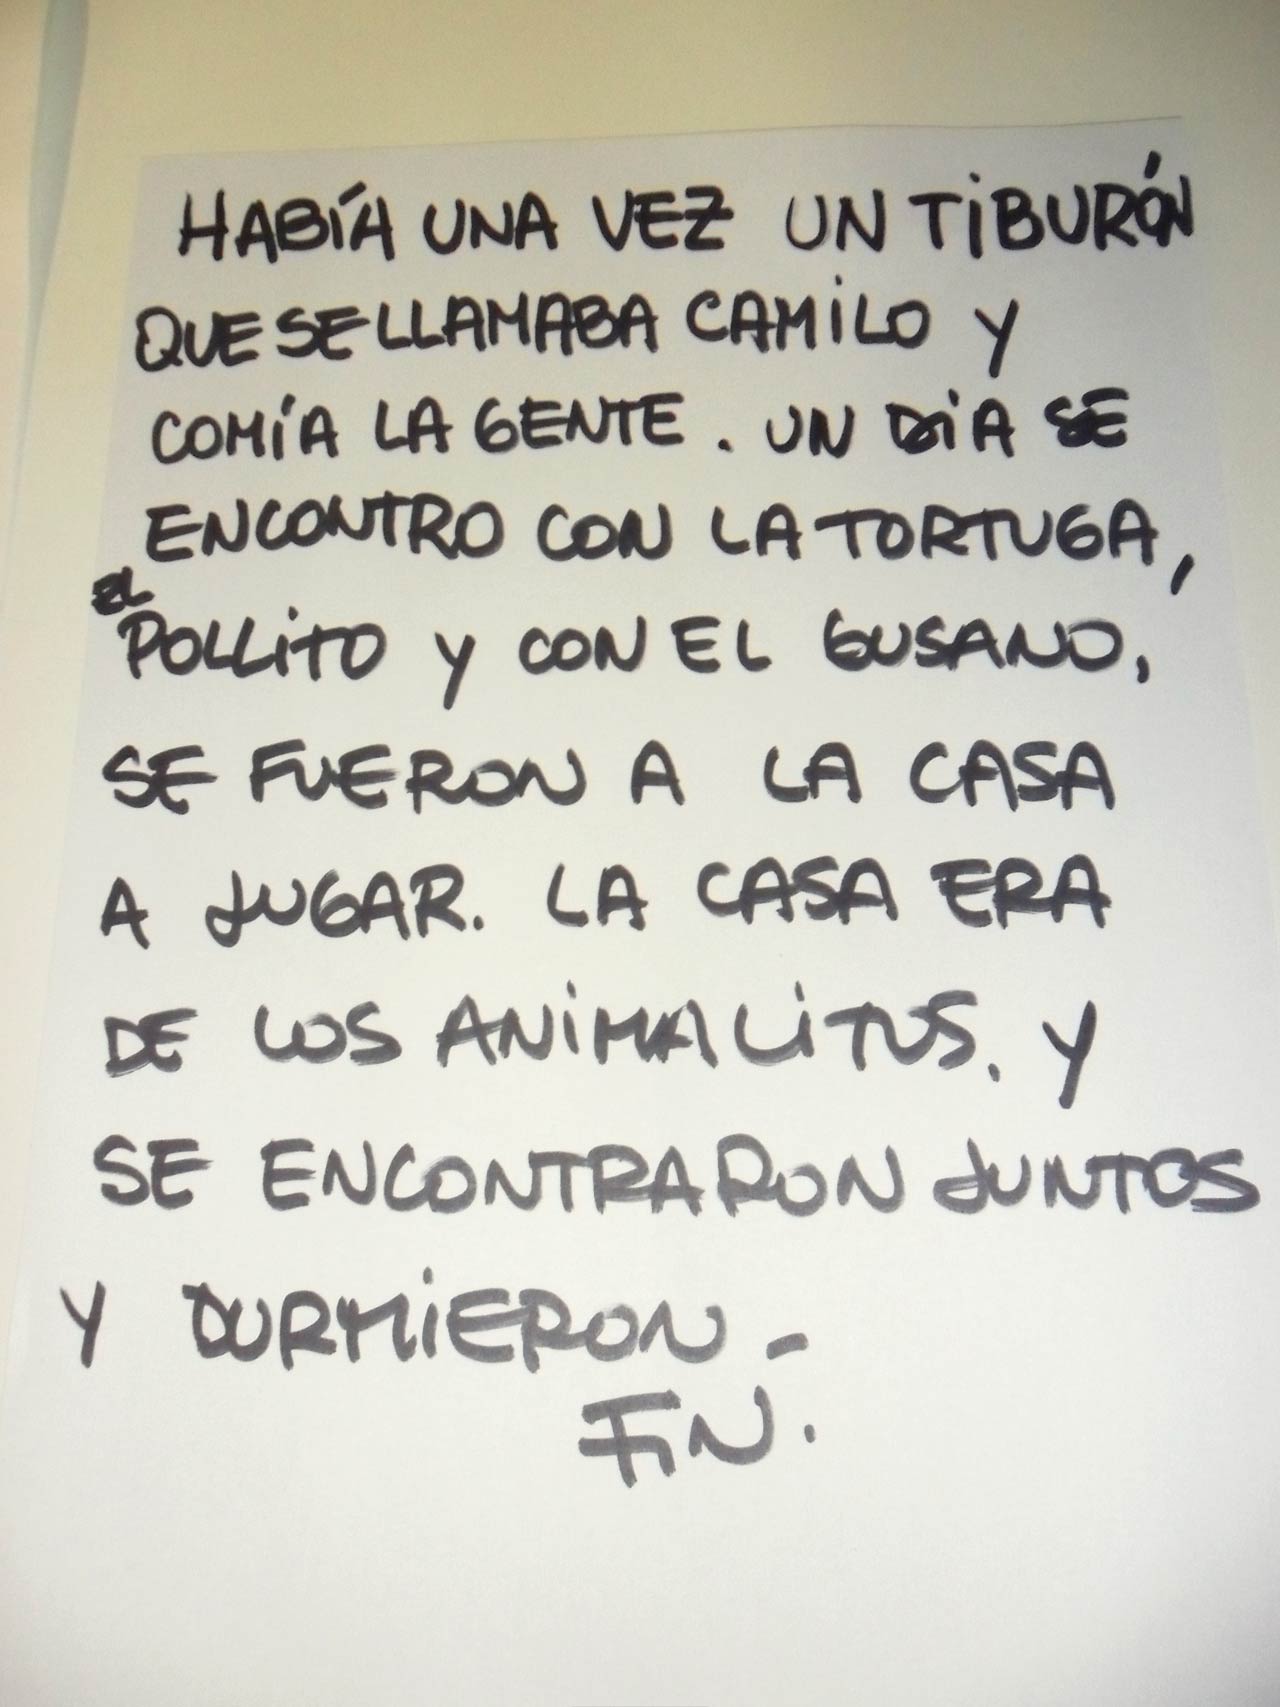 HABÍA UNA VEZ UN TIBURÓN
QUE SE LLAMABA CAMILO Y
COMÍA LA GENTE. UN DIA SE
ENCONTRO CON LA TORTUGA,
EL POLLITO Y CON EL GUSANO,
SE FUERON A LA CASA
A JUGAR. LA CASA ERA
DE LOS ANIMALITOS. Y
SE ENCONTRARON JUNTOS
Y DURMIERON -
FIN.